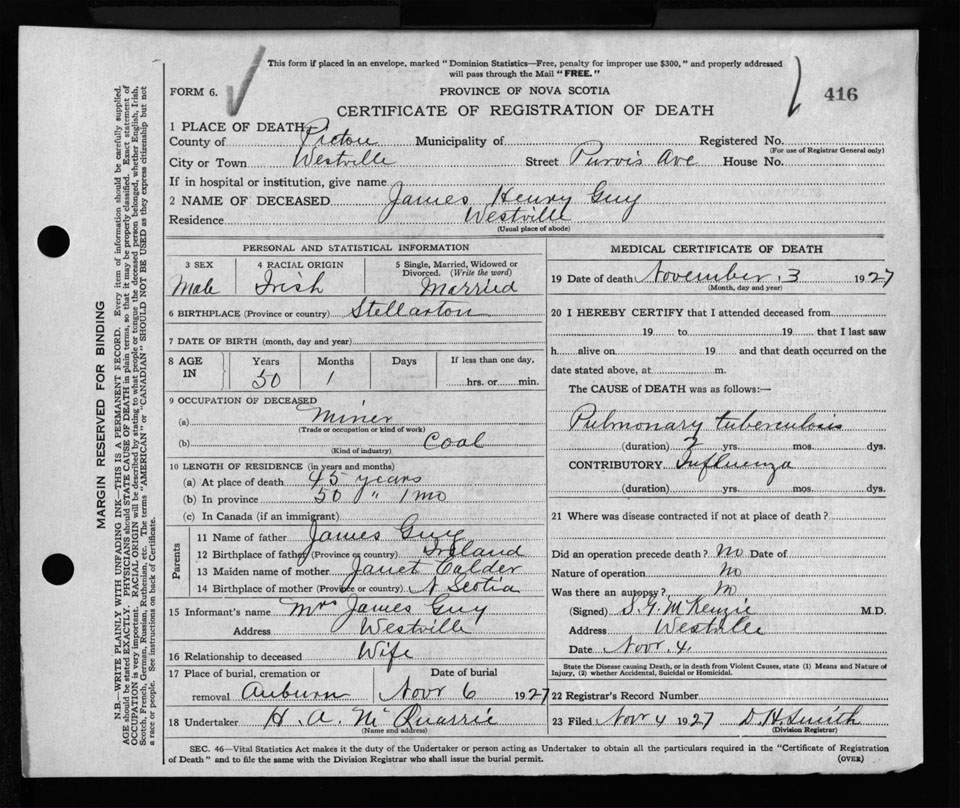 This form if placed in an envelope, marked "Dominion Statistics—Free, penalty for improper use $300," and properly addressed
will pass through the Mail "FREE."
FORM 6.
PROVINCE OF NOVA SCOTIA
416
CERTIFICATE OF REGISTRATION OF DEATH
1 PLACE OF DEATH
County of Pictou Municipality of Registered No.
(For use of Registrar General only)
City or Town Westville Street Purvis Ave House No.
If in hospital or institution, give name
2 NAME OF DECEASED James Henry Guy
Residence Westville
(Usual place of abode)
PERSONAL AND STATISTICAL INFORMATION
3 SEX 4 RACIAL ORIGIN 5 Single, Married, Widowed or
Divorced. (Write the word)
Male Irish Married
6 BIRTHPLACE (Province or country) Stellarton
7 DATE OF BIRTH (month, day and year)
8 AGE IN Years Months Days If less than one day,
50 1 hrs. or min.
9 OCCUPATION OF DECEASED
(a) Miner
(Trade or occupation or kind of work)
(b) Coal
(Kind of industry)
10 LENGTH OF RESIDENCE (in years and months)
(a) At place of death 45 years
(b) In province 50 " 1 mo
(c) In Canada (if an immigrant)
Parents
11 Name of father James Guy
12 Birthplace of father (Province or country) Ireland
13 Maiden name of mother Janet Calder
14 Birthplace of mother (Province or country) N Scotia
15 Informant's name Mrs James Guy
Address Westville
16 Relationship to deceased Wife
17 Place of burial, cremation or Date of burial
removal Auburn Novr 6 1927
18 Undertaker H. A. McQuarrie
(Name and address)
MEDICAL CERTIFICATE OF DEATH
19 Date of death November 3 1927
(Month, day and year)
20 I HEREBY CERTIFY that I attended deceased from
19 to 19 that I last saw
h alive on 19 and that death occurred on the
date stated above, at m.
The CAUSE of DEATH was as follows:—
Pulmonary tuberculosis
(duration) 2 yrs. mos. dys.
CONTRIBUTORY Influenza
(duration) yrs. mos. dys.
21 Where was disease contracted if not at place of death?
Did an operation precede death? No Date of
Nature of operation No
Was there an autopsy? No
(Signed) S. G. McKenzie M.D.
Address Westville
Date Novr. 4.
State the Disease causing Death, or in death from Violent Causes, state (1) Means and Nature of
Injury, (2) whether Accidental, Suicidal or Homicidal.
22 Registrar's Record Number
23 Filed Novr 4 1927 D. H. Smith
(Division Registrar)
SEC. 46—Vital Statistics Act makes it the duty of the Undertaker or person acting as Undertaker to obtain all the particulars required in the "Certificate of Registration
of Death" and to file the same with the Division Registrar who shall issue the burial permit.
(OVER)
MARGIN RESERVED FOR BINDING
N.B.—WRITE PLAINLY WITH UNFADING INK—THIS IS A PERMANENT RECORD. Every item of information should be carefully supplied.
AGE should be stated EXACTLY. PHYSICIANS should STATE CAUSE OF DEATH in plain terms, so that it may be properly classified. Exact statement of
OCCUPATION is very important. RACIAL ORIGIN will be described by stating to what people or tongue the deceased person belonged, whether English, Irish,
Scotch, French, German, Russian, Ruthenian, etc. The terms "AMERICAN" or "CANADIAN" SHOULD NOT BE USED as they express citizenship but not
a race or people. See instructions on back of Certificate.